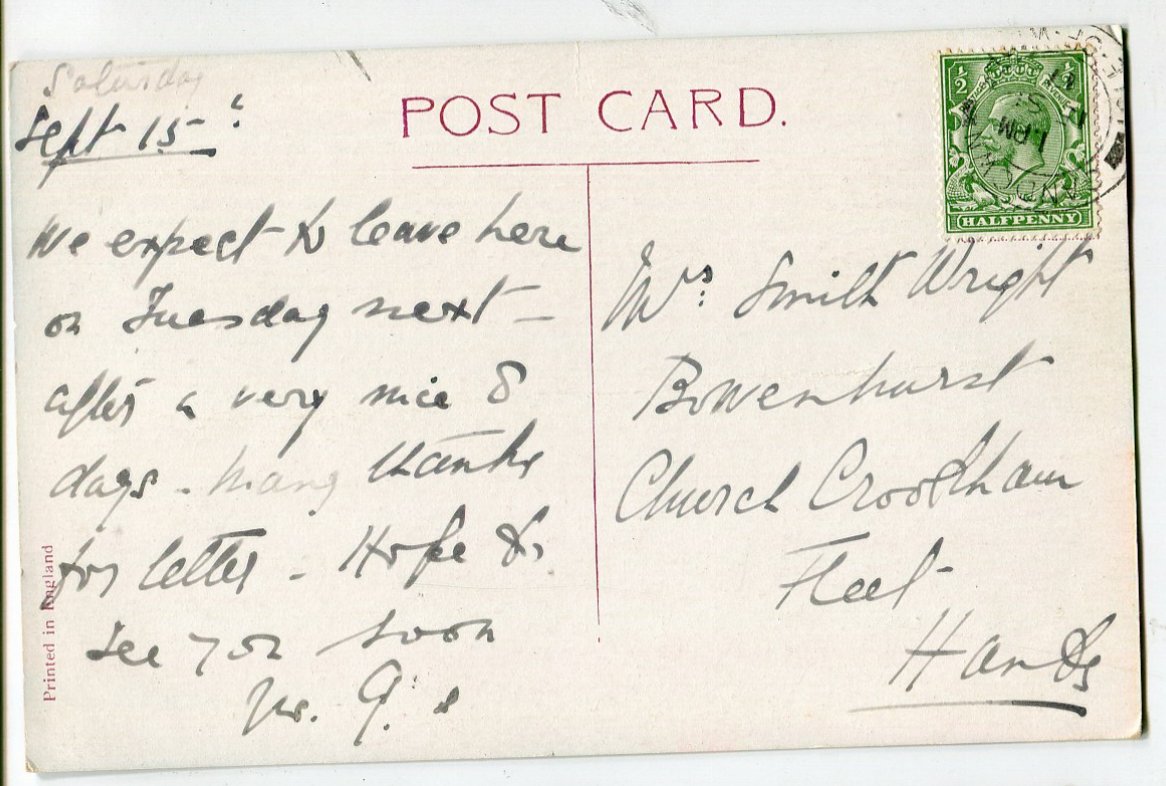 POST CARD.
Saturday
Sept 15
We expect to leave here
on Tuesday next —
after a very nice 8
days - Many thanks
for letter - Hope to
see you soon
Mrs: Smith Wright
Bowenhurst
Church Crookham
Fleet
Hants
Printed in England
1/2 1/2
1 PM
HALFPENNY